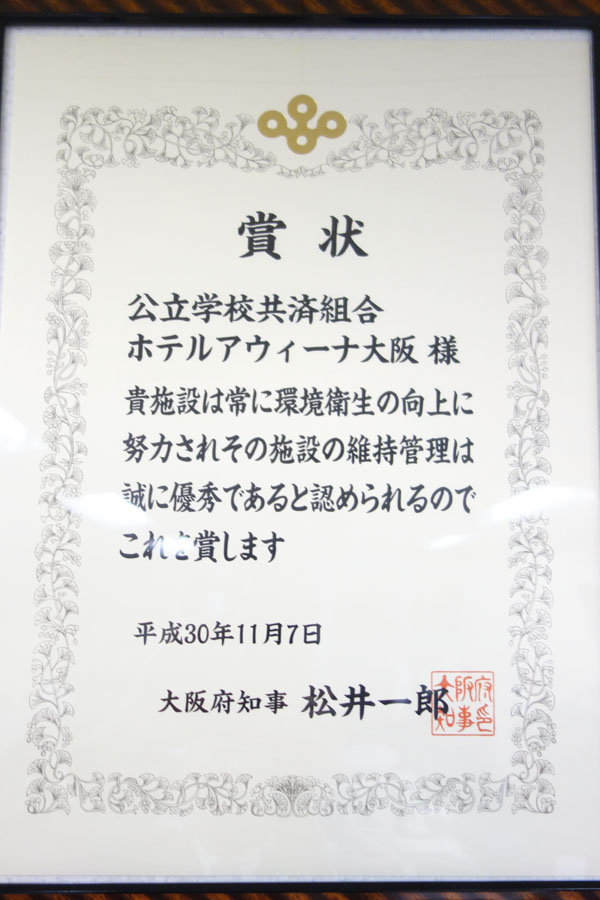 賞状
公立学校共済組合
ホテルアウィーナ大阪 様
貴施設は常に環境衛生の向上に
努力されその施設の維持管理は
誠に優秀であると認められるので
これを賞します
平成30年11月7日
大阪府知事 松井一郎
大阪府
知事印